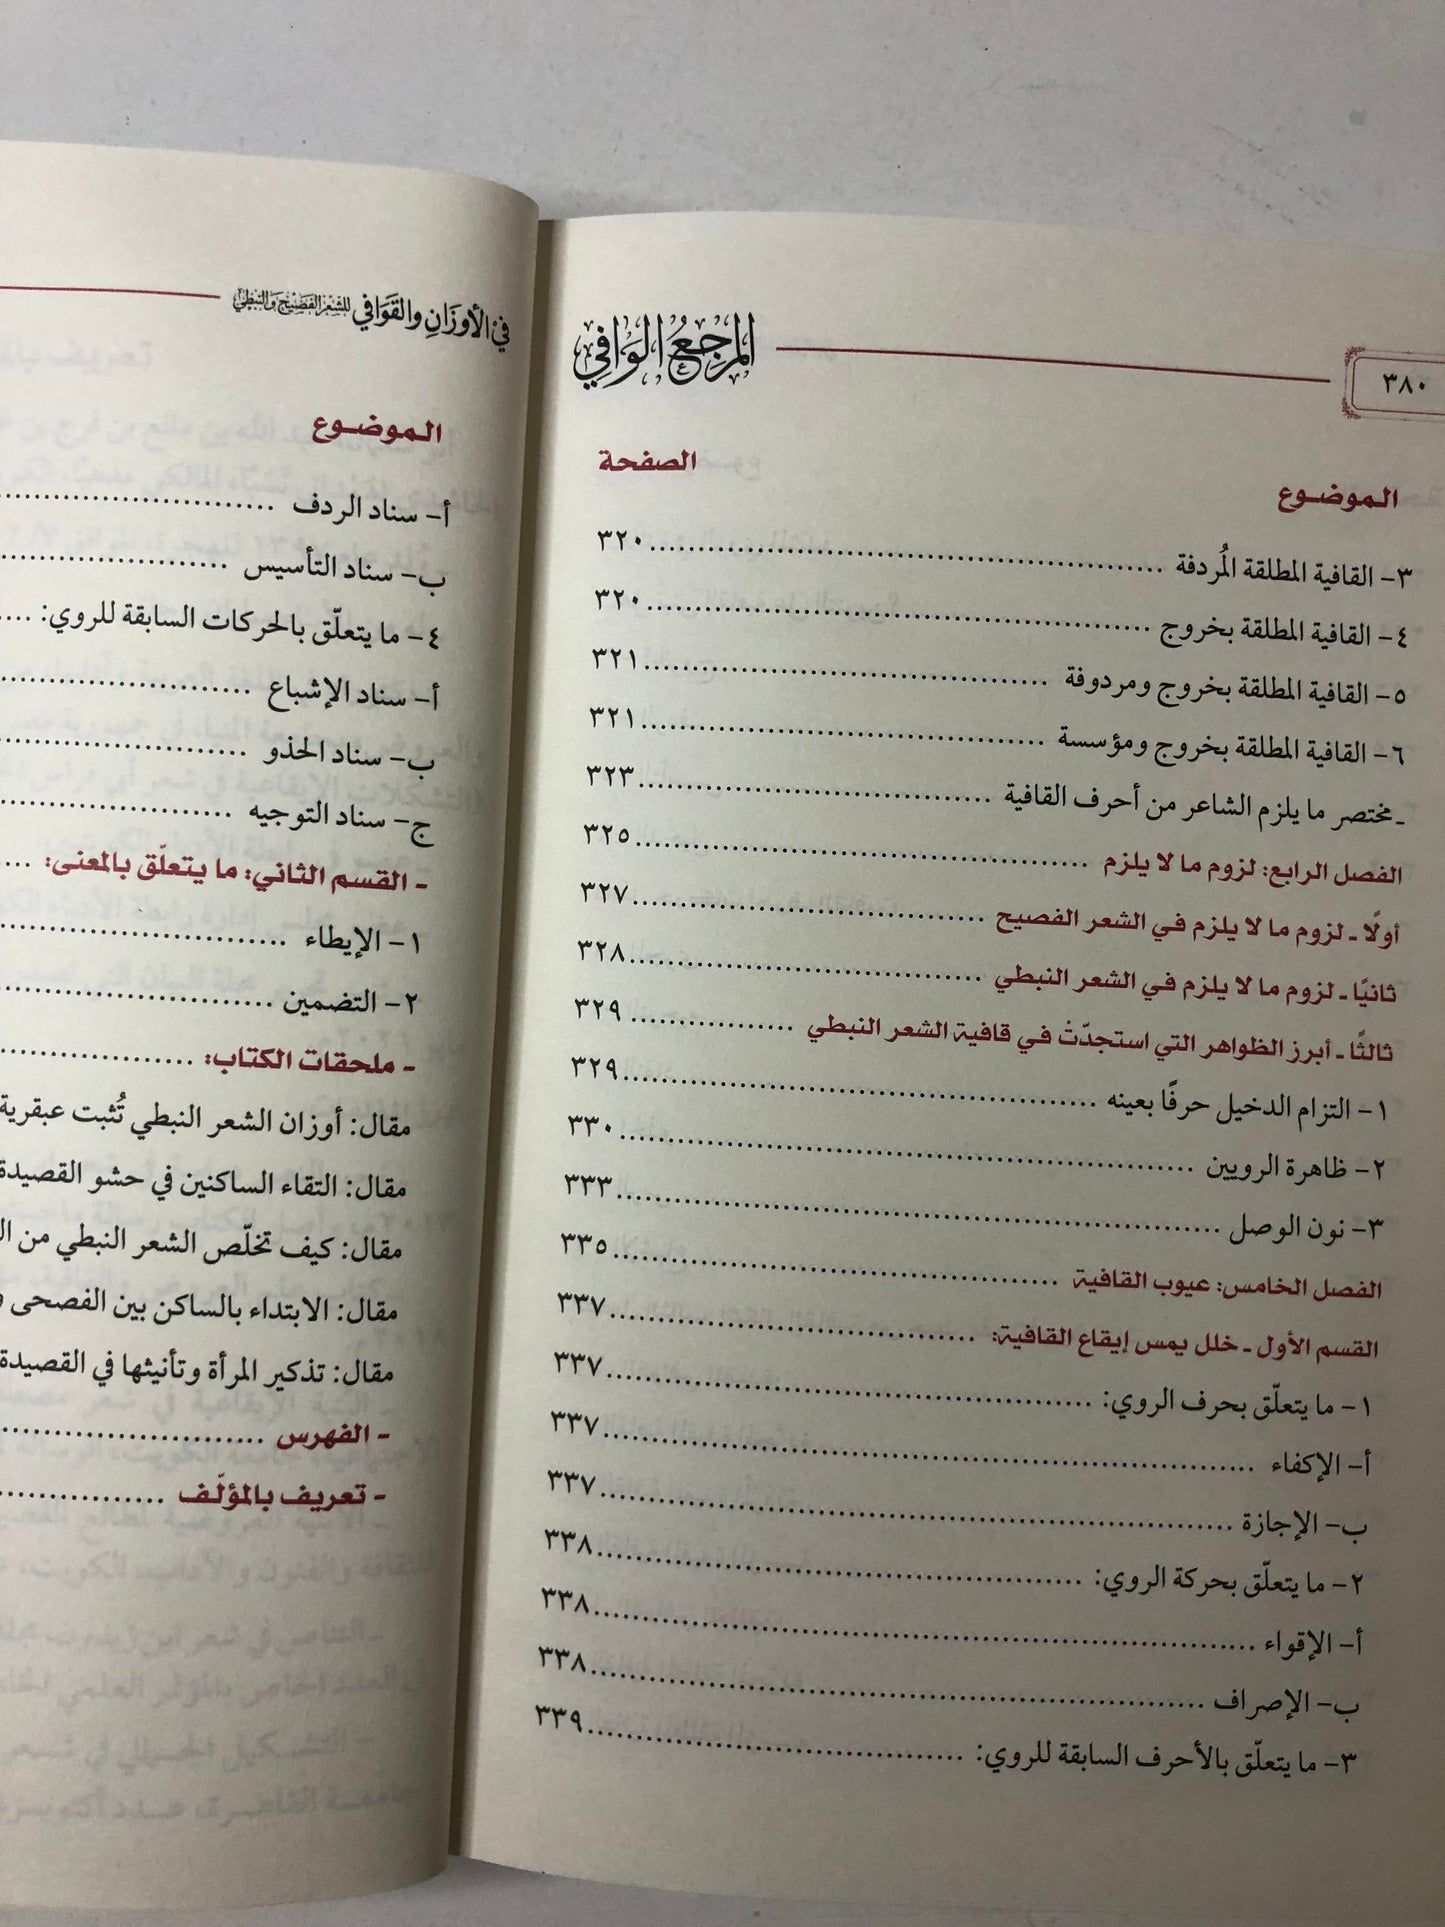 ٣٨٠
المرجع الوافي
الموضوع الصفحة
٣- القافية المطلقة المُردفة ........ ٣٢٠
٤- القافية المطلقة بخروج ........ ٣٢٠
٥- القافية المطلقة بخروج ومردوفة ........ ٣٢١
٦- القافية المطلقة بخروج ومؤسسة ........ ٣٢١
ـ مختصر ما يلزم الشاعر من أحرف القافية ........ ٣٢٣
الفصل الرابع: لزوم ما لا يلزم ........ ٣٢٥
أولًا ـ لزوم ما لا يلزم في الشعر الفصيح ........ ٣٢٧
ثانيًا ـ لزوم ما لا يلزم في الشعر النبطي ........ ٣٢٨
ثالثًا ـ أبرز الظواهر التي استجدّتْ في قافية الشعر النبطي ........ ٣٢٩
١- التزام الدخيل حرفًا بعينه ........ ٣٢٩
٢- ظاهرة الرويين ........ ٣٣٠
٣- نون الوصل ........ ٣٣٣
الفصل الخامس: عيوب القافية ........ ٣٣٥
القسم الأول ـ خلل يمس إيقاع القافية: ........ ٣٣٧
١- ما يتعلّق بحرف الروي: ........ ٣٣٧
أ- الإكفاء ........ ٣٣٧
ب- الإجازة ........ ٣٣٧
٢- ما يتعلّق بحركة الروي: ........ ٣٣٨
أ- الإقواء ........ ٣٣٨
ب- الإصراف ........ ٣٣٨
٣- ما يتعلّق بالأحرف السابقة للروي: ........ ٣٣٩
في الأوزان والقوافي للشعر الفصيح والنبطي
الموضوع
أ- سناد الردف ........
ب- سناد التأسيس ........
٤- ما يتعلّق بالحركات السابقة للروي: ....
أ- سناد الإشباع ........
ب- سناد الحذو ........
ج- سناد التوجيه ........
- القسم الثاني: ما يتعلّق بالمعنى: ....
١- الإيطاء ........
٢- التضمين ........
- ملحقات الكتاب: ........
مقال: أوزان الشعر النبطي تُثبت عبقرية
مقال: التقاء الساكنين في حشو القصيدة
مقال: كيف تخلّص الشعر النبطي من
مقال: الابتداء بالساكن بين الفصحى
مقال: تذكير المرأة وتأنيثها في القصيدة
- الفهرس ........
- تعريف بالمؤلّف ........